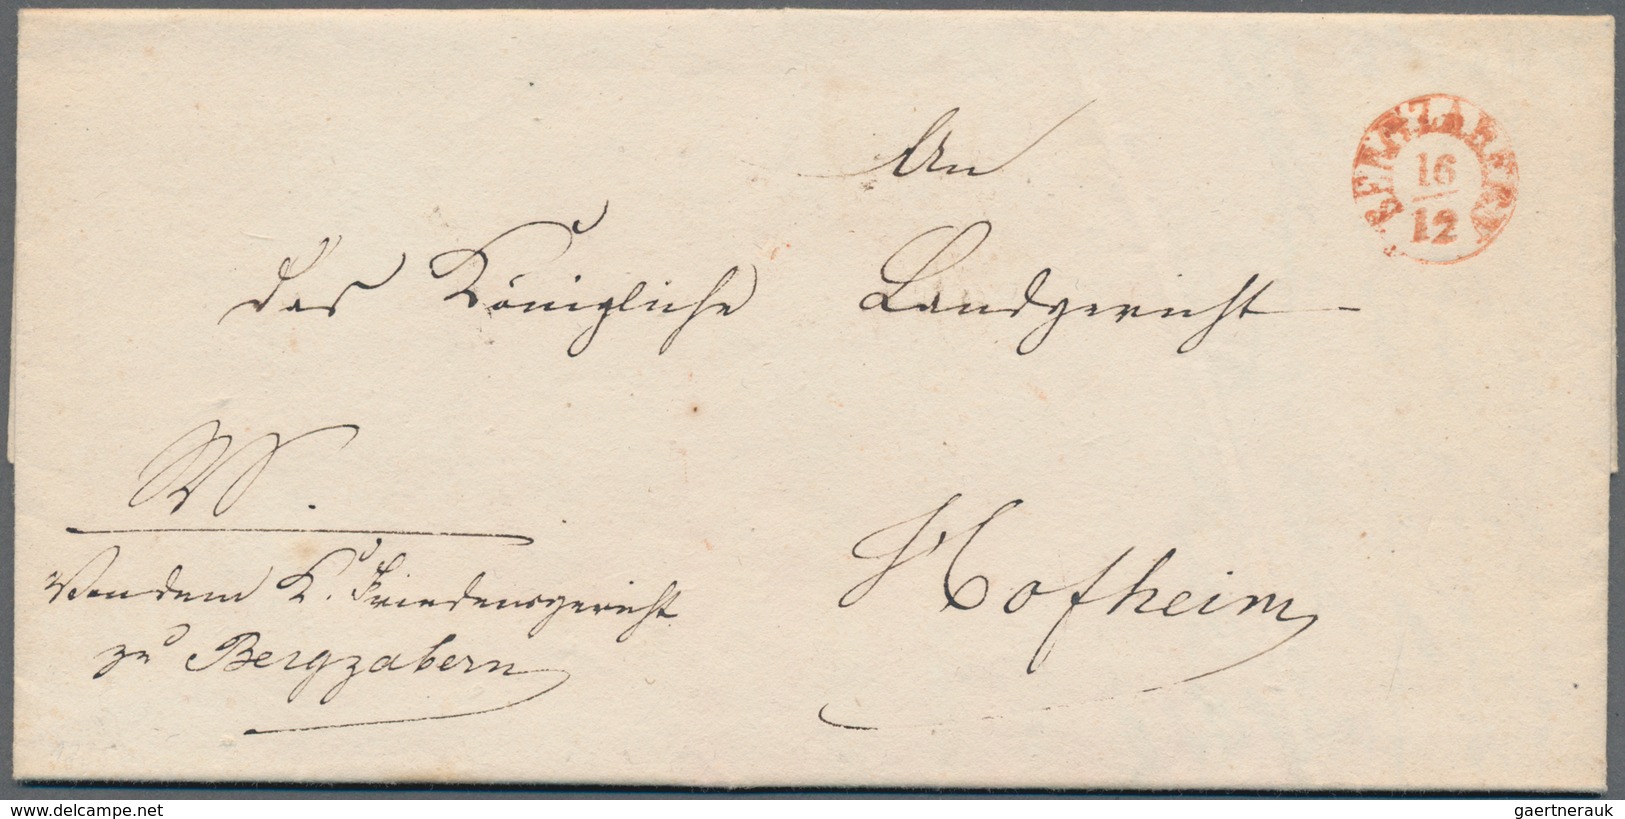 An
BERGZABERN
16
12
das Königliche Landgericht
Hofheim
Von dem K. Friedensgericht
zu Bergzabern
www.delcampe.net
gaertnerauk